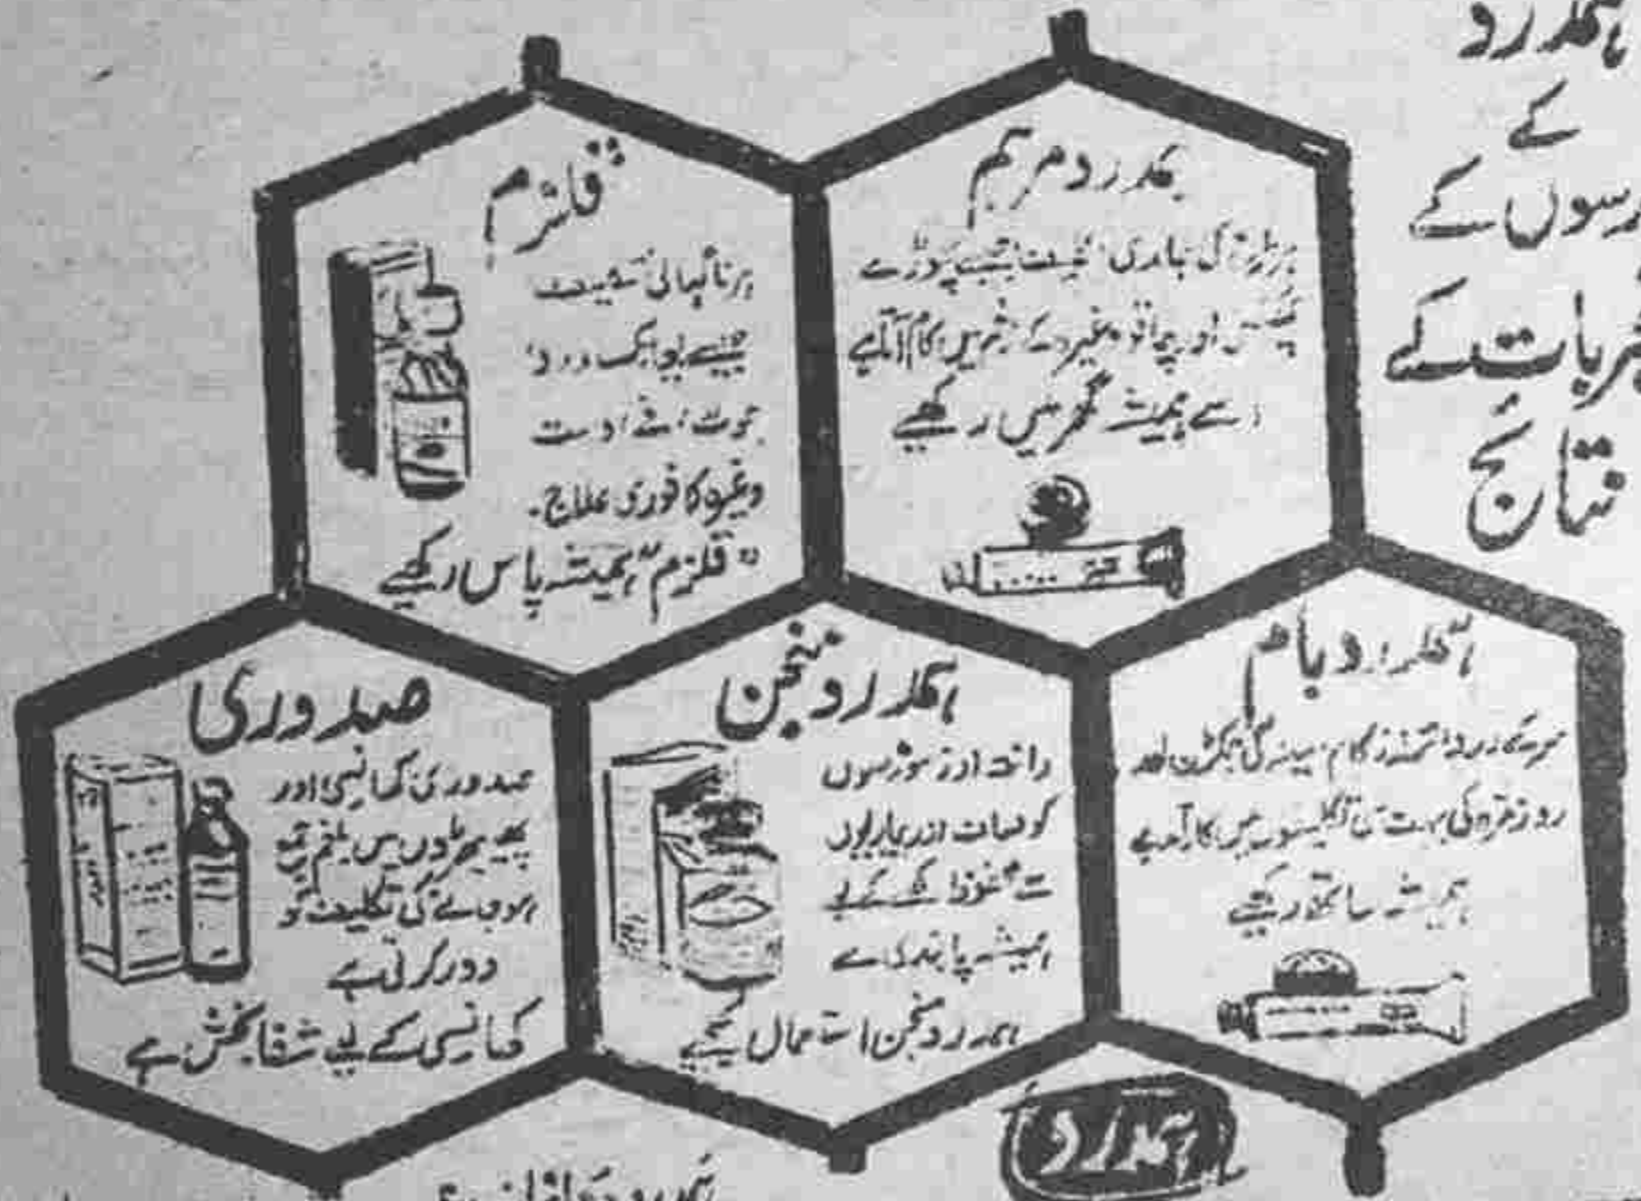 ہمدرد
کے
برسوں کے
تجربات کے
نتائج
ہمدرد مرہم
ہر طرح کی
اور چاقو وغیرہ کے زخم میں کام آتا ہے
اسے ہمیشہ گھر میں رکھیے
قلزم
ہر ناگہانی
جیسے
دست
وغیرہ کا فوری علاج۔
"قلزم" ہمیشہ پاس رکھیے
ہمدرد بام
سر کے درد، نزلہ زکام، سینہ کی جکڑن اور
روزمرہ کی بہت سی تکلیفوں میں کارآمد ہے
ہمیشہ ساتھ رکھیے
ہمدرد منجن
دانت اور مسوڑھوں
کو صاف اور بیماریوں
سے محفوظ رکھنے کے لیے
ہمیشہ پابندی سے
ہمدرد منجن استعمال کیجیے
صدوری
صدوری کھانسی اور
پھیپھڑوں میں بلغم
ہو جانے کی تکلیف کو
دور کرتی ہے
کھانسی کے لیے شفا بخش ہے
ہمدرد